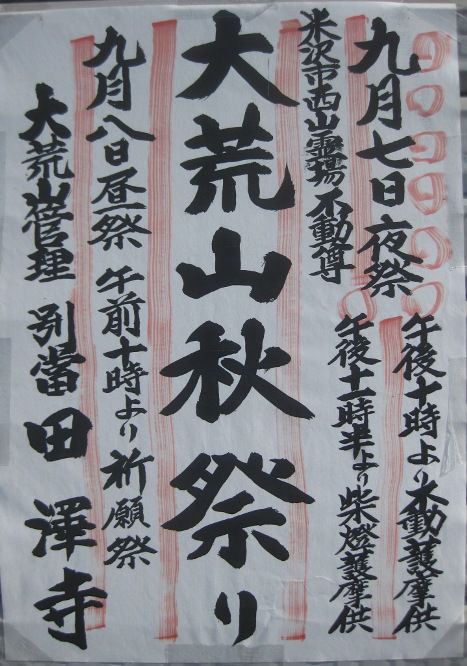 九月七日夜祭
午後十時より不動護摩供
午後十一時半より柴燈護摩供
米沢市西山霊場不動尊
大荒山秋祭り
九月八日昼祭 午前十時より祈願祭
大荒山管理 別當 田澤寺